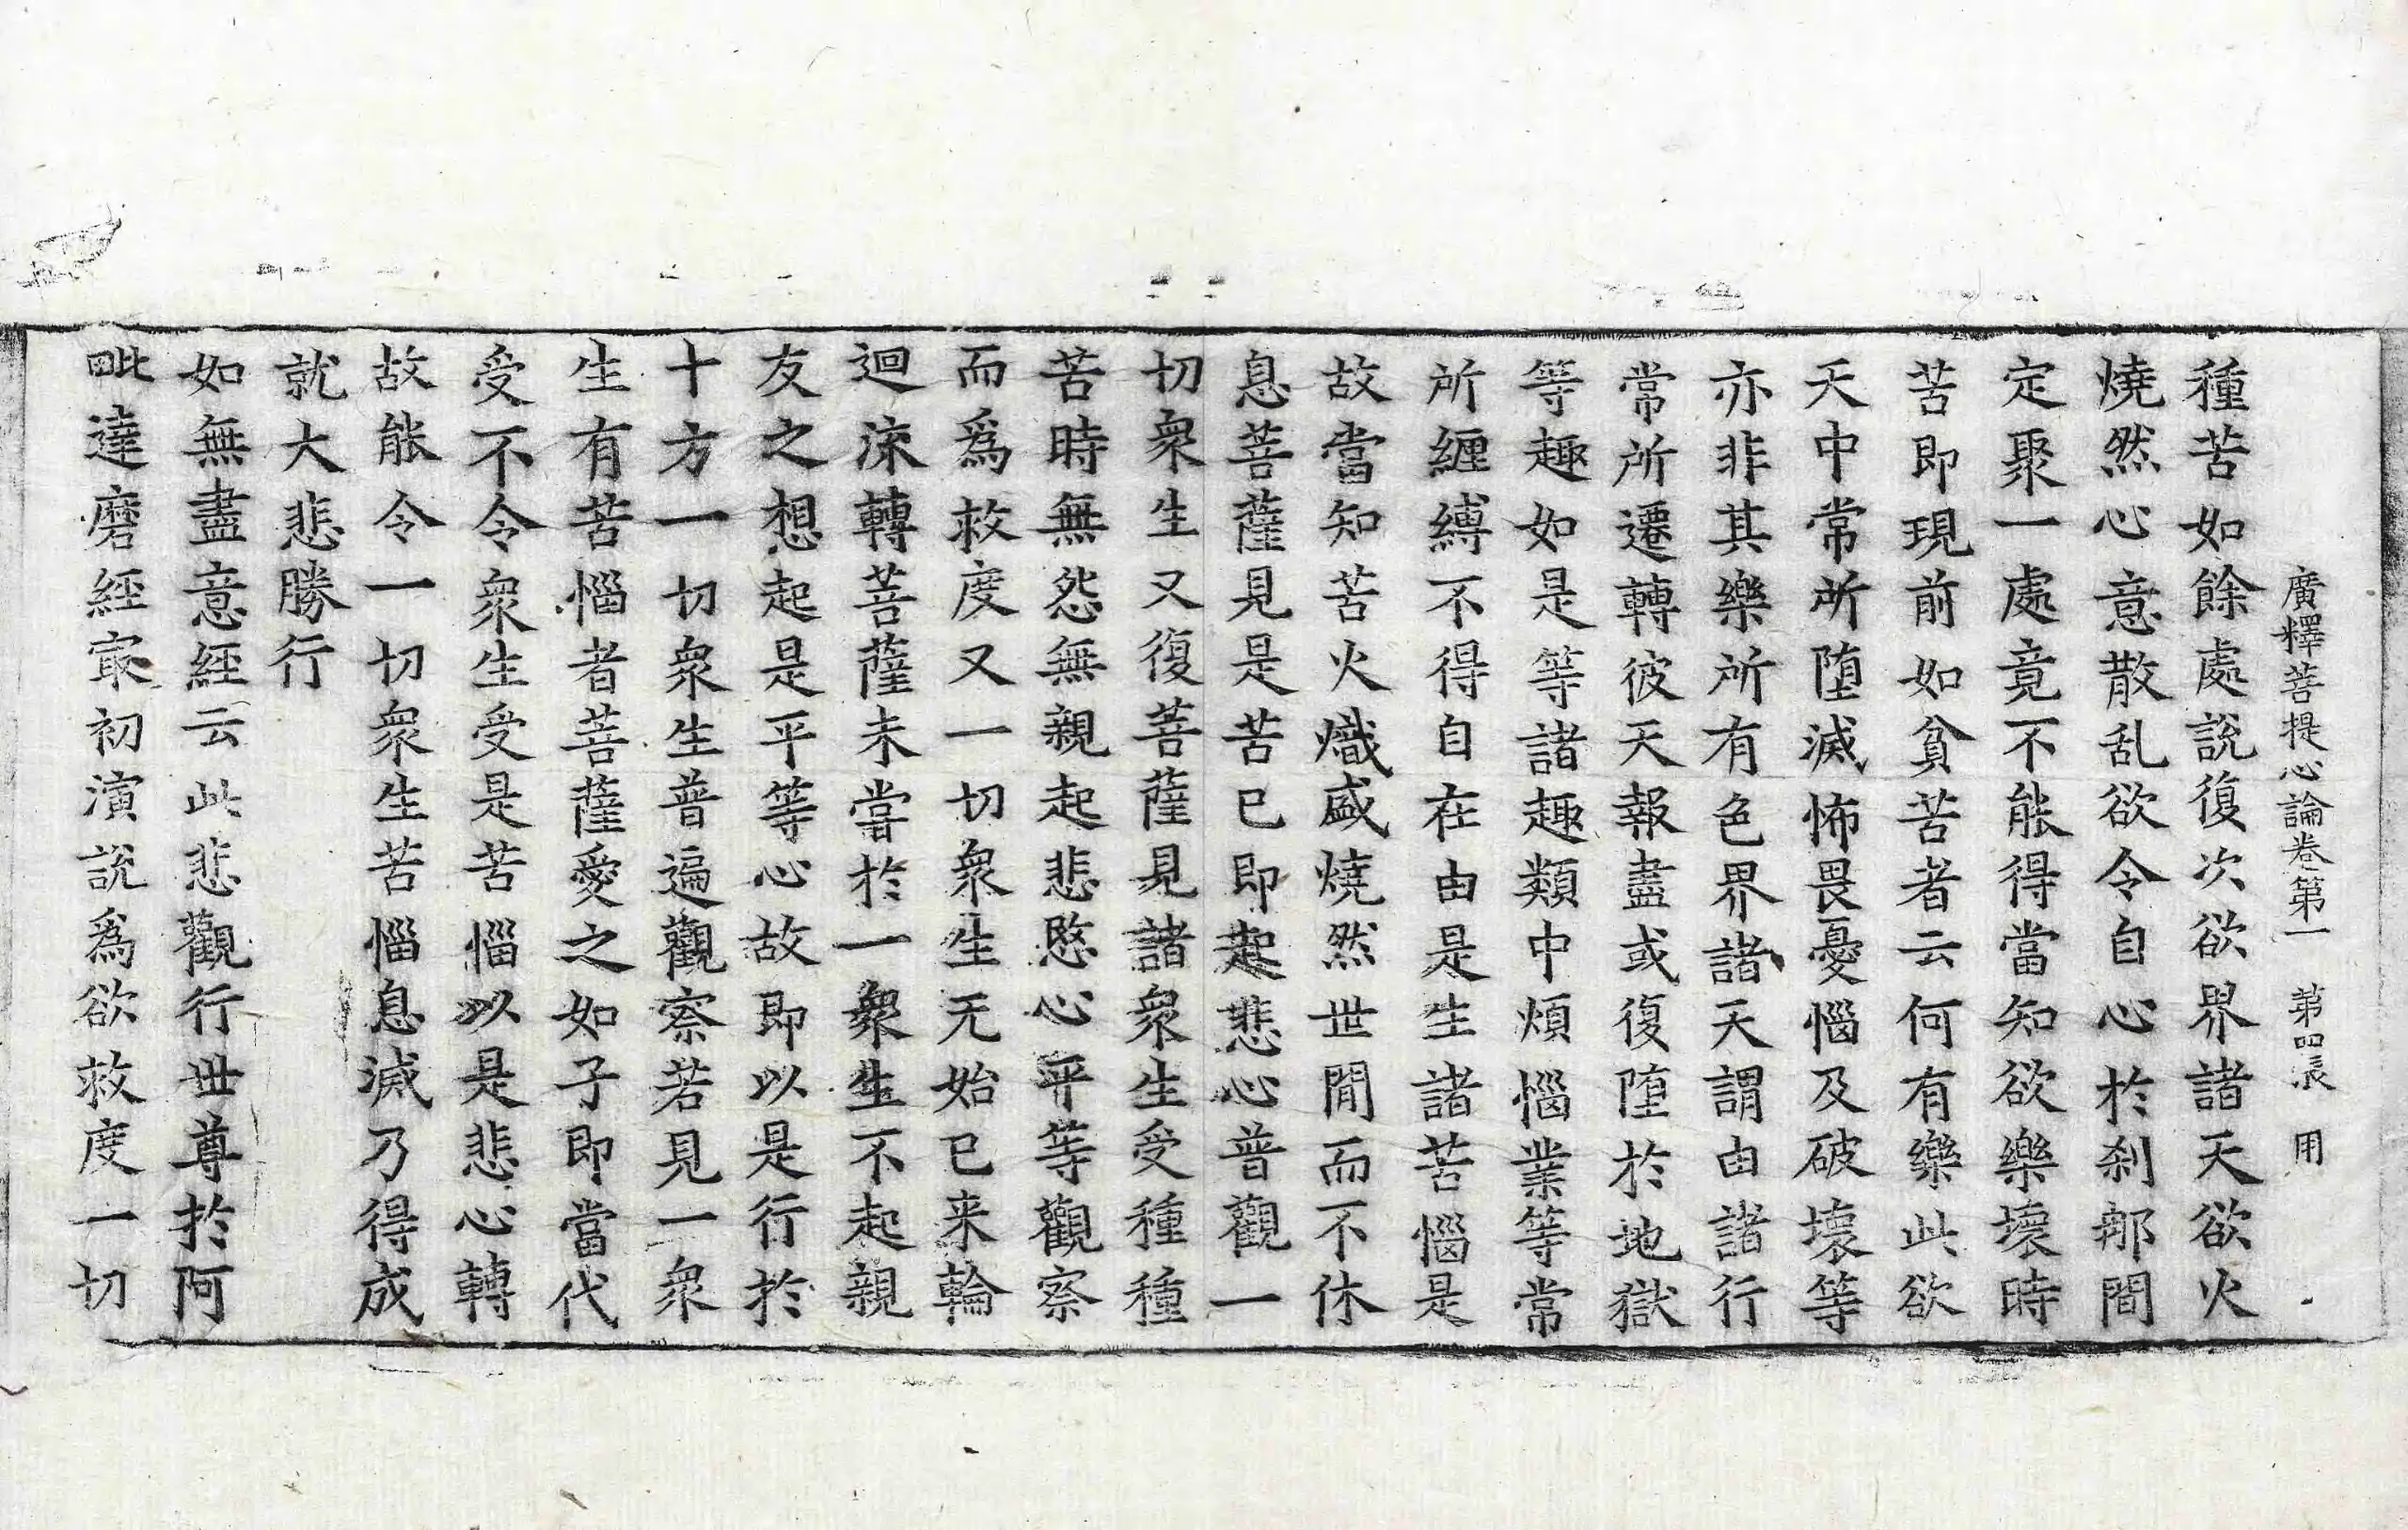 廣釋菩提心論卷第一　第四張　用
種苦如餘處說復次欲界諸天欲火
燒然心意散乱欲令自心於刹那間
定聚一處竟不能得當知欲樂壞時
苦即現前如貧苦者云何有樂此欲
天中常所墮滅怖畏憂惱及破壞等
亦非其樂所有色界諸天謂由諸行
常所遷轉彼天報盡或復墮於地獄
等趣如是等諸趣類中煩惱業等常
所纏縛不得自在由是生諸苦惱是
故當知苦火熾盛燒然世間而不休
息菩薩見是苦已即起悲心普觀一
切衆生又復菩薩見諸衆生受種種
苦時無怨無親起悲愍心平等觀察
而爲救度又一切衆生无始已来輪
迴流轉菩薩未嘗於一衆生不起親
友之想起是平等心故即以是行於
十方一切衆生普遍觀察若見一衆
生有苦惱者菩薩愛之如子即當代
受不令衆生受是苦惱以是悲心轉
故能令一切衆生苦惱息滅乃得成
就大悲勝行
如無盡意經云此悲觀行世尊於阿
毗達磨經㝡初演說爲欲救度一切